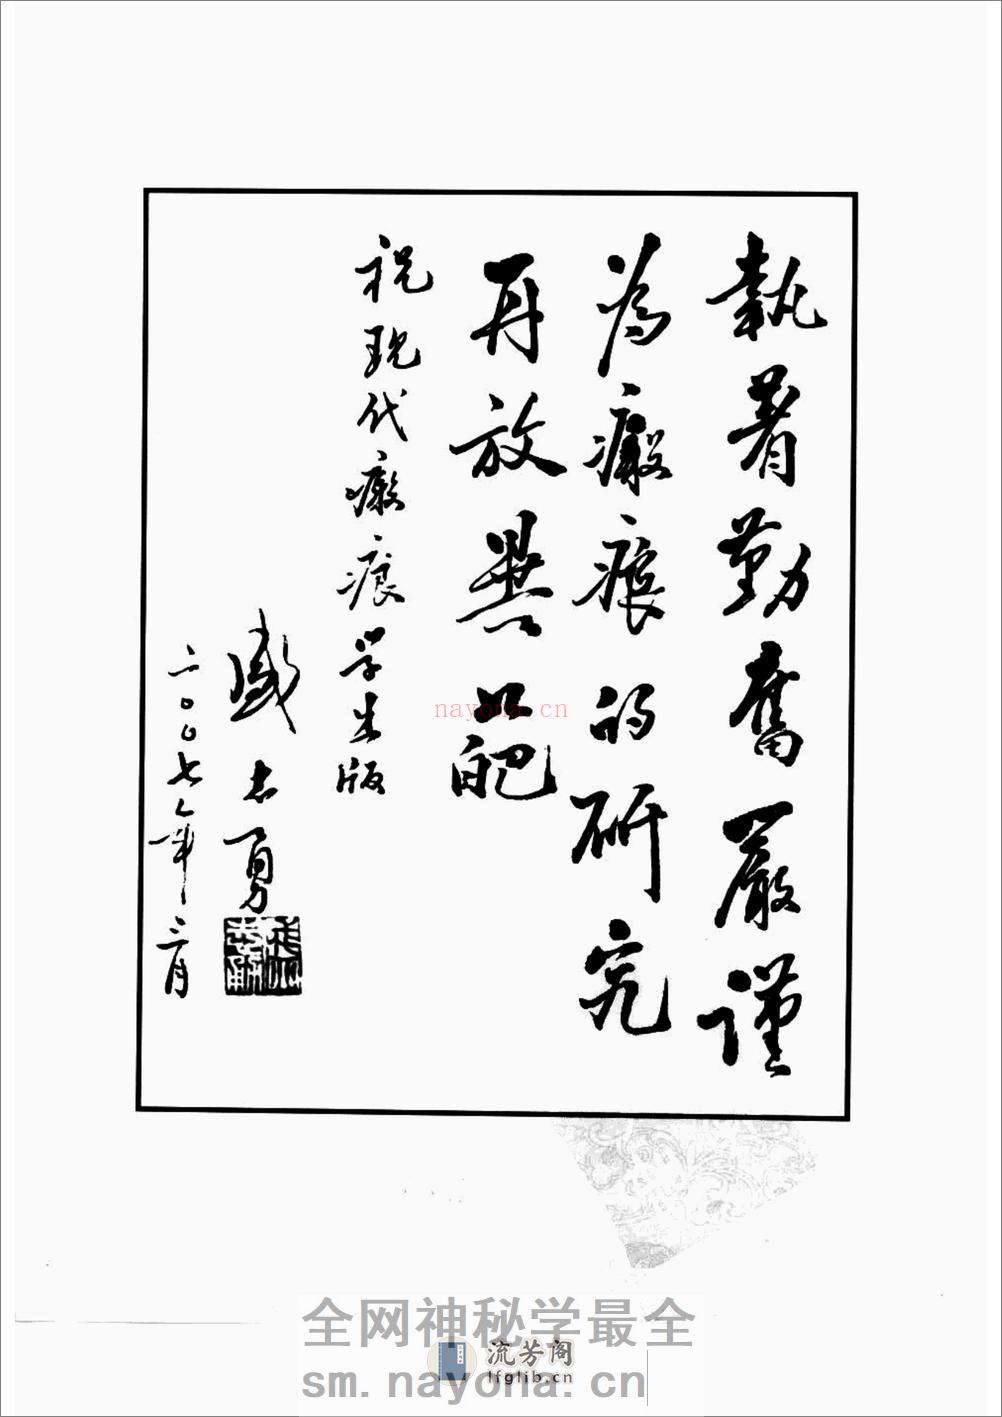 執著勤奮嚴謹
為瘢痕的研究
再放異葩
祝現代瘢痕学出版
盛志勇
二〇〇七年三月
nayona.cn
全网神秘学最全
流芳阁
lfglib.cn
sm.nayona.cn